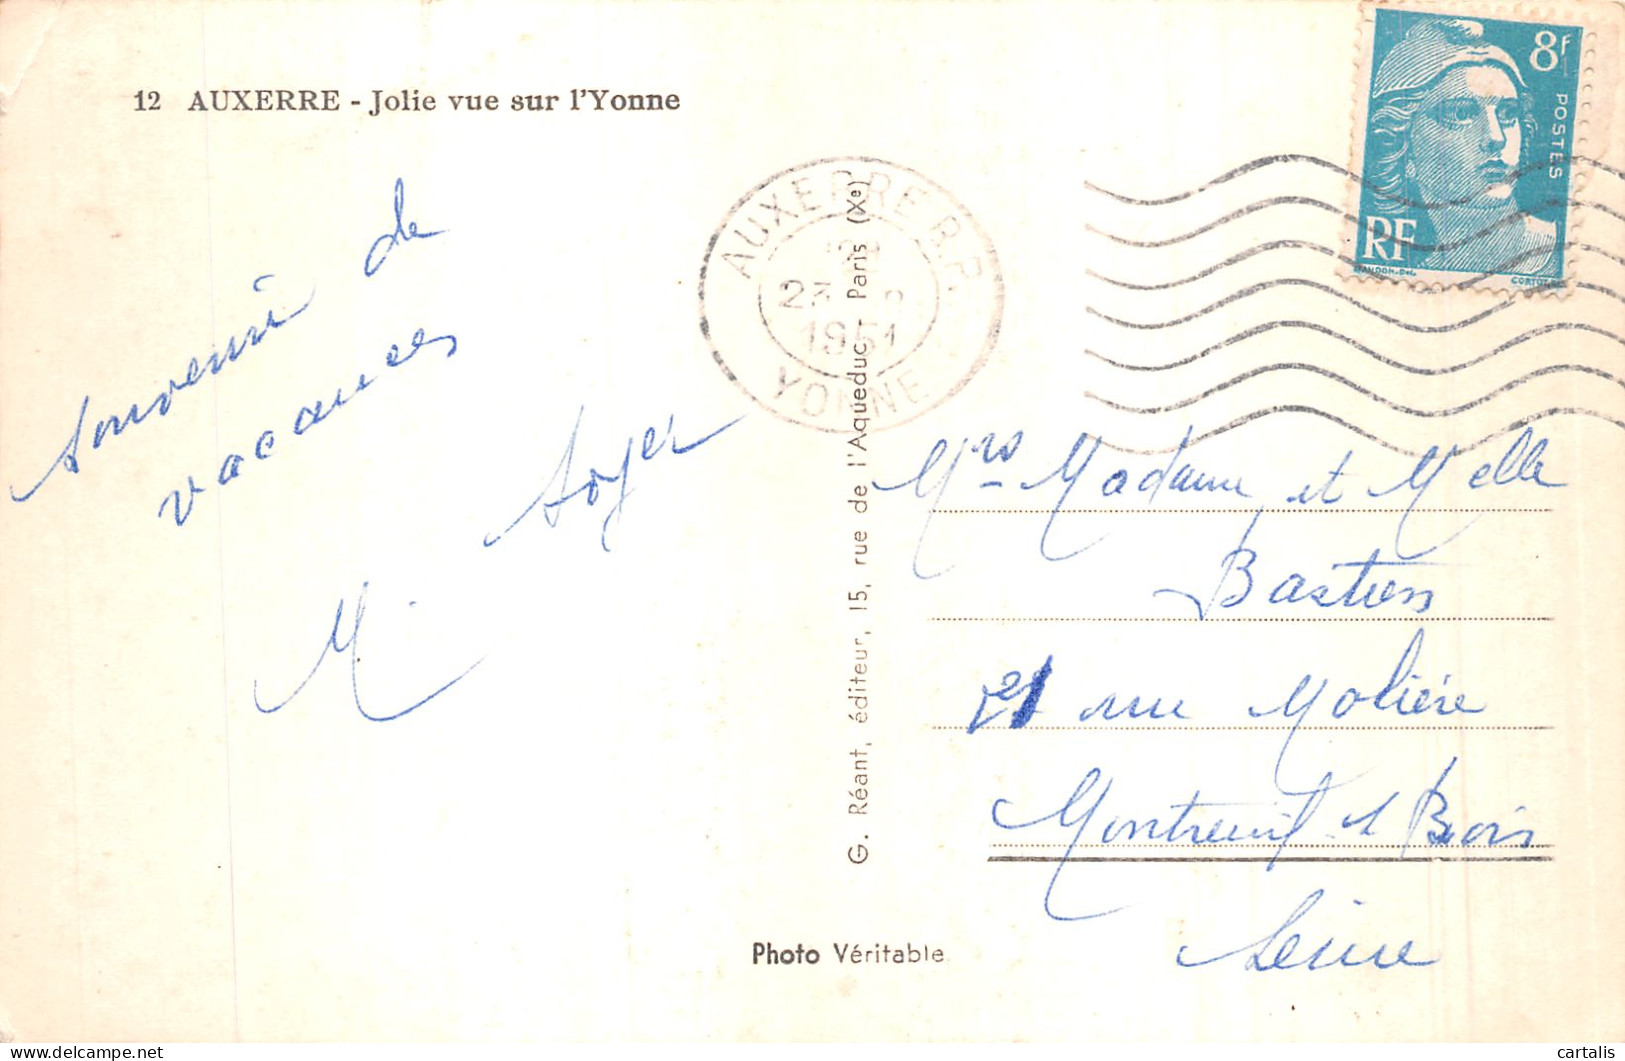 12 AUXERRE - Jolie vue sur l'Yonne
8f
POSTES
RF
GANDON-DEL.
AUXERRE R.P.
23
1951
YONNE
souvenir de
vacances
M. Soyer
G. Réant, éditeur, 15, rue de l'Aqueduc - Paris (Xe)
Mrs Madame et Melle
Bastien
21 rue Molière
Montreuil s Bois
Seine
Photo Véritable
cartalis